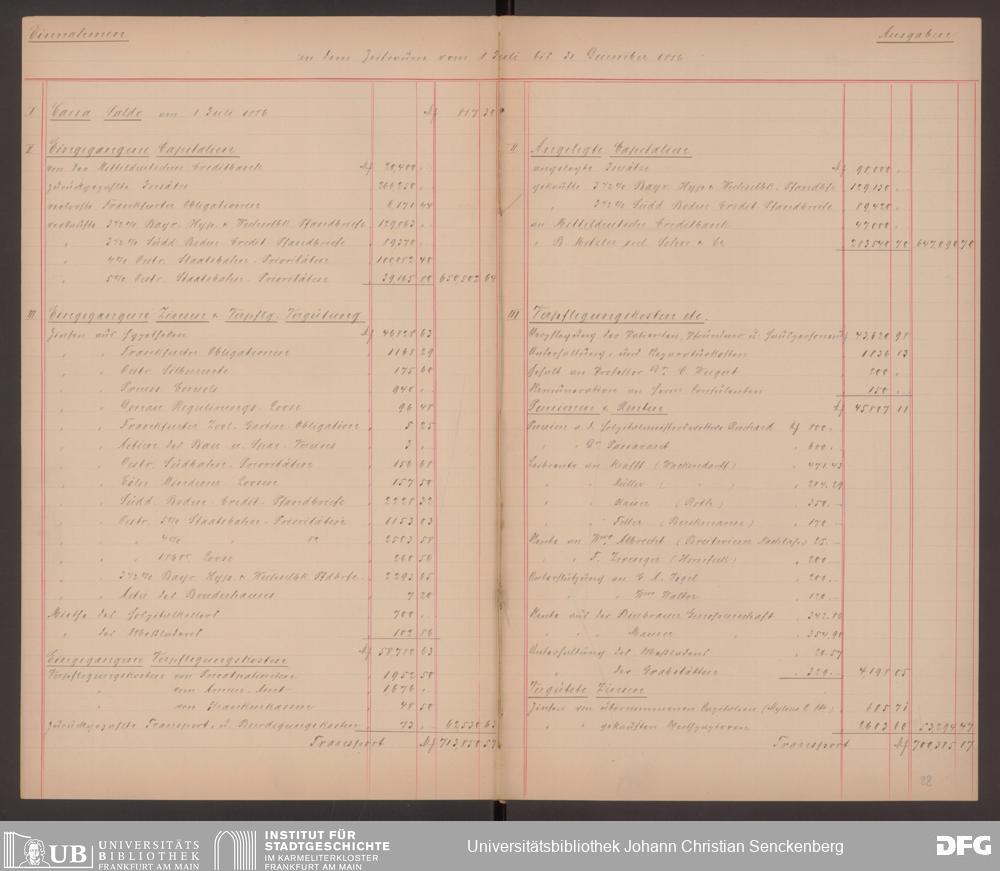 Einnahmen
Ausgaben
in dem Zeitraum vom 1 Juli bis 31 December 1886
I Cassa Saldo am 1 Juli 1886 M 817 38
II Eingegangene Capitalien
von der Mitteldeutschen Creditbank M 20,400.-
zurückgezahlte Insätze
verlooste Frankfurter Obligationen 6,171 44
verkaufte 3½% Bayr. Hyp. & Wechselbk. Pfandbriefe 129,063.
" 3½% Südd. Boden-Credit-Pfandbriefe
" 4% Oestr. Staatsbahn-Prioritäten
" 5% Oestr. Staatsbahn-Prioritäten 650,502 64
III Eingegangene Zinsen & Verpfleg. Vergütung
Zinsen aus Hypotheken M 46808 63
" " Frankfurter Obligationen 1168 29
" " Oestr. Silberrente 175 60
" " Preuss. Consols 940.
" " Donau Regulirungs-Loose 96 48
" " Frankfurter Zool. Garten-Obligationen 5 25
" " Actien des Bau u. Spar-Vereins 3.
" " Oestr. Südbahn-Prioritäten 156 68
" " Cöln Mindener Loosen 157 50
" " Südd. Boden-Credit-Pfandbriefe 2228 32
" " Oestr. 5% Staatsbahn-Prioritäten 1153 03
" " " 4% " 2503 58
" " " 1860r Loose 260 56
" " 3½% Bayr. Hyp. & Wechselbk. Pfdbrfe. 2293 65
" " Actie des Bruderhauses 7 20
Miethe des Hospitalkellers 700.
" des Meßladens 102 86
M 58760 63
Eingegangene Verpflegungskosten
Verpflegungskosten von Privatpatienten 1952 50
" vom Armen-Amt 1676.
" von Krankenkassen 48 50
zurückgezahlte Transport- u. Beerdigungskosten 73.- 62530 63
Transport M 713,850 57
II Angelegte Capitalien
angelegte Insätze M 98,000.
gekaufte 3½% Bayr. Hyp. & Wechselbk. Pfandbfe. 129,130.
" 3½% Südd. Boden Credit-Pfandbriefe 89,420.
an Mitteldeutsche Creditbank 47,000.
" B. Metzler seel. Sohn & Co 283540 70 647,090 70
III Verpflegungskosten etc.
Verpflegung der Patienten, Pfründner u. Hausgenossen M 43,620 98
Unterhaltung- und Reparaturkosten 1036 13
Gehalt an Professor Dr. C. Weigert 200.
Remuneration an Consulenten 150.
M 45007 11
Pensionen & Renten
Pension a. d. Hospitalmeisterswittwe Reichard M 100.
" Dr. Passavant 600.
Leibrente an Krafft (Wackendorff) 471.43
" " Müller ( " ) 204.29
" " Kaiser (Roth) 350.
" " Feller 170.-
Rente an Wwe Albrecht 25.-
" F. Zwenger 200.-
Unterstützung an G. A. Vogel 200.-
" " Wwe Walter 120.-
Rente aus der Genossenschaft 342.86
" " " 354.90
Unterhaltung des Meßladens 20.57
" der Grabstätten 329.- 4,198.05
Vergütete Zinsen
Zinsen von übernommenen Capitalien 605 71
" " gekauften Werthpapieren 2603 60 53,294.47
Transport M 700,385 17
28
UB UNIVERSITÄTS
BIBLIOTHEK
FRANKFURT AM MAIN
INSTITUT FÜR
STADTGESCHICHTE
IM KARMELITERKLOSTER
FRANKFURT AM MAIN
Universitätsbibliothek Johann Christian Senckenberg
DFG